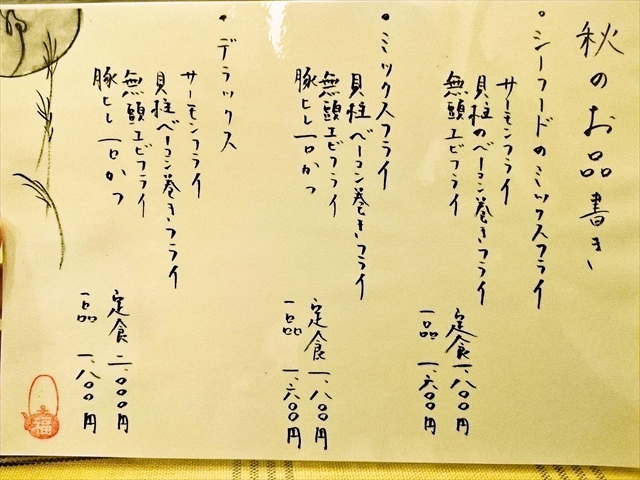 秋のお品書き
・シーフードのミックスフライ
サーモンフライ
貝柱のベーコン巻きフライ
無頭エビフライ
定食 一、八〇〇円
一品 一、六〇〇円
・ミックスフライ
貝柱ベーコン巻きフライ
無頭エビフライ
豚ヒレ一口かつ
定食 一、八〇〇円
一品 一、六〇〇円
・デラックス
サーモンフライ
貝柱ベーコン巻きフライ
無頭エビフライ
豚ヒレ一口かつ
定食 二、〇〇〇円
一品 一、八〇〇円
福